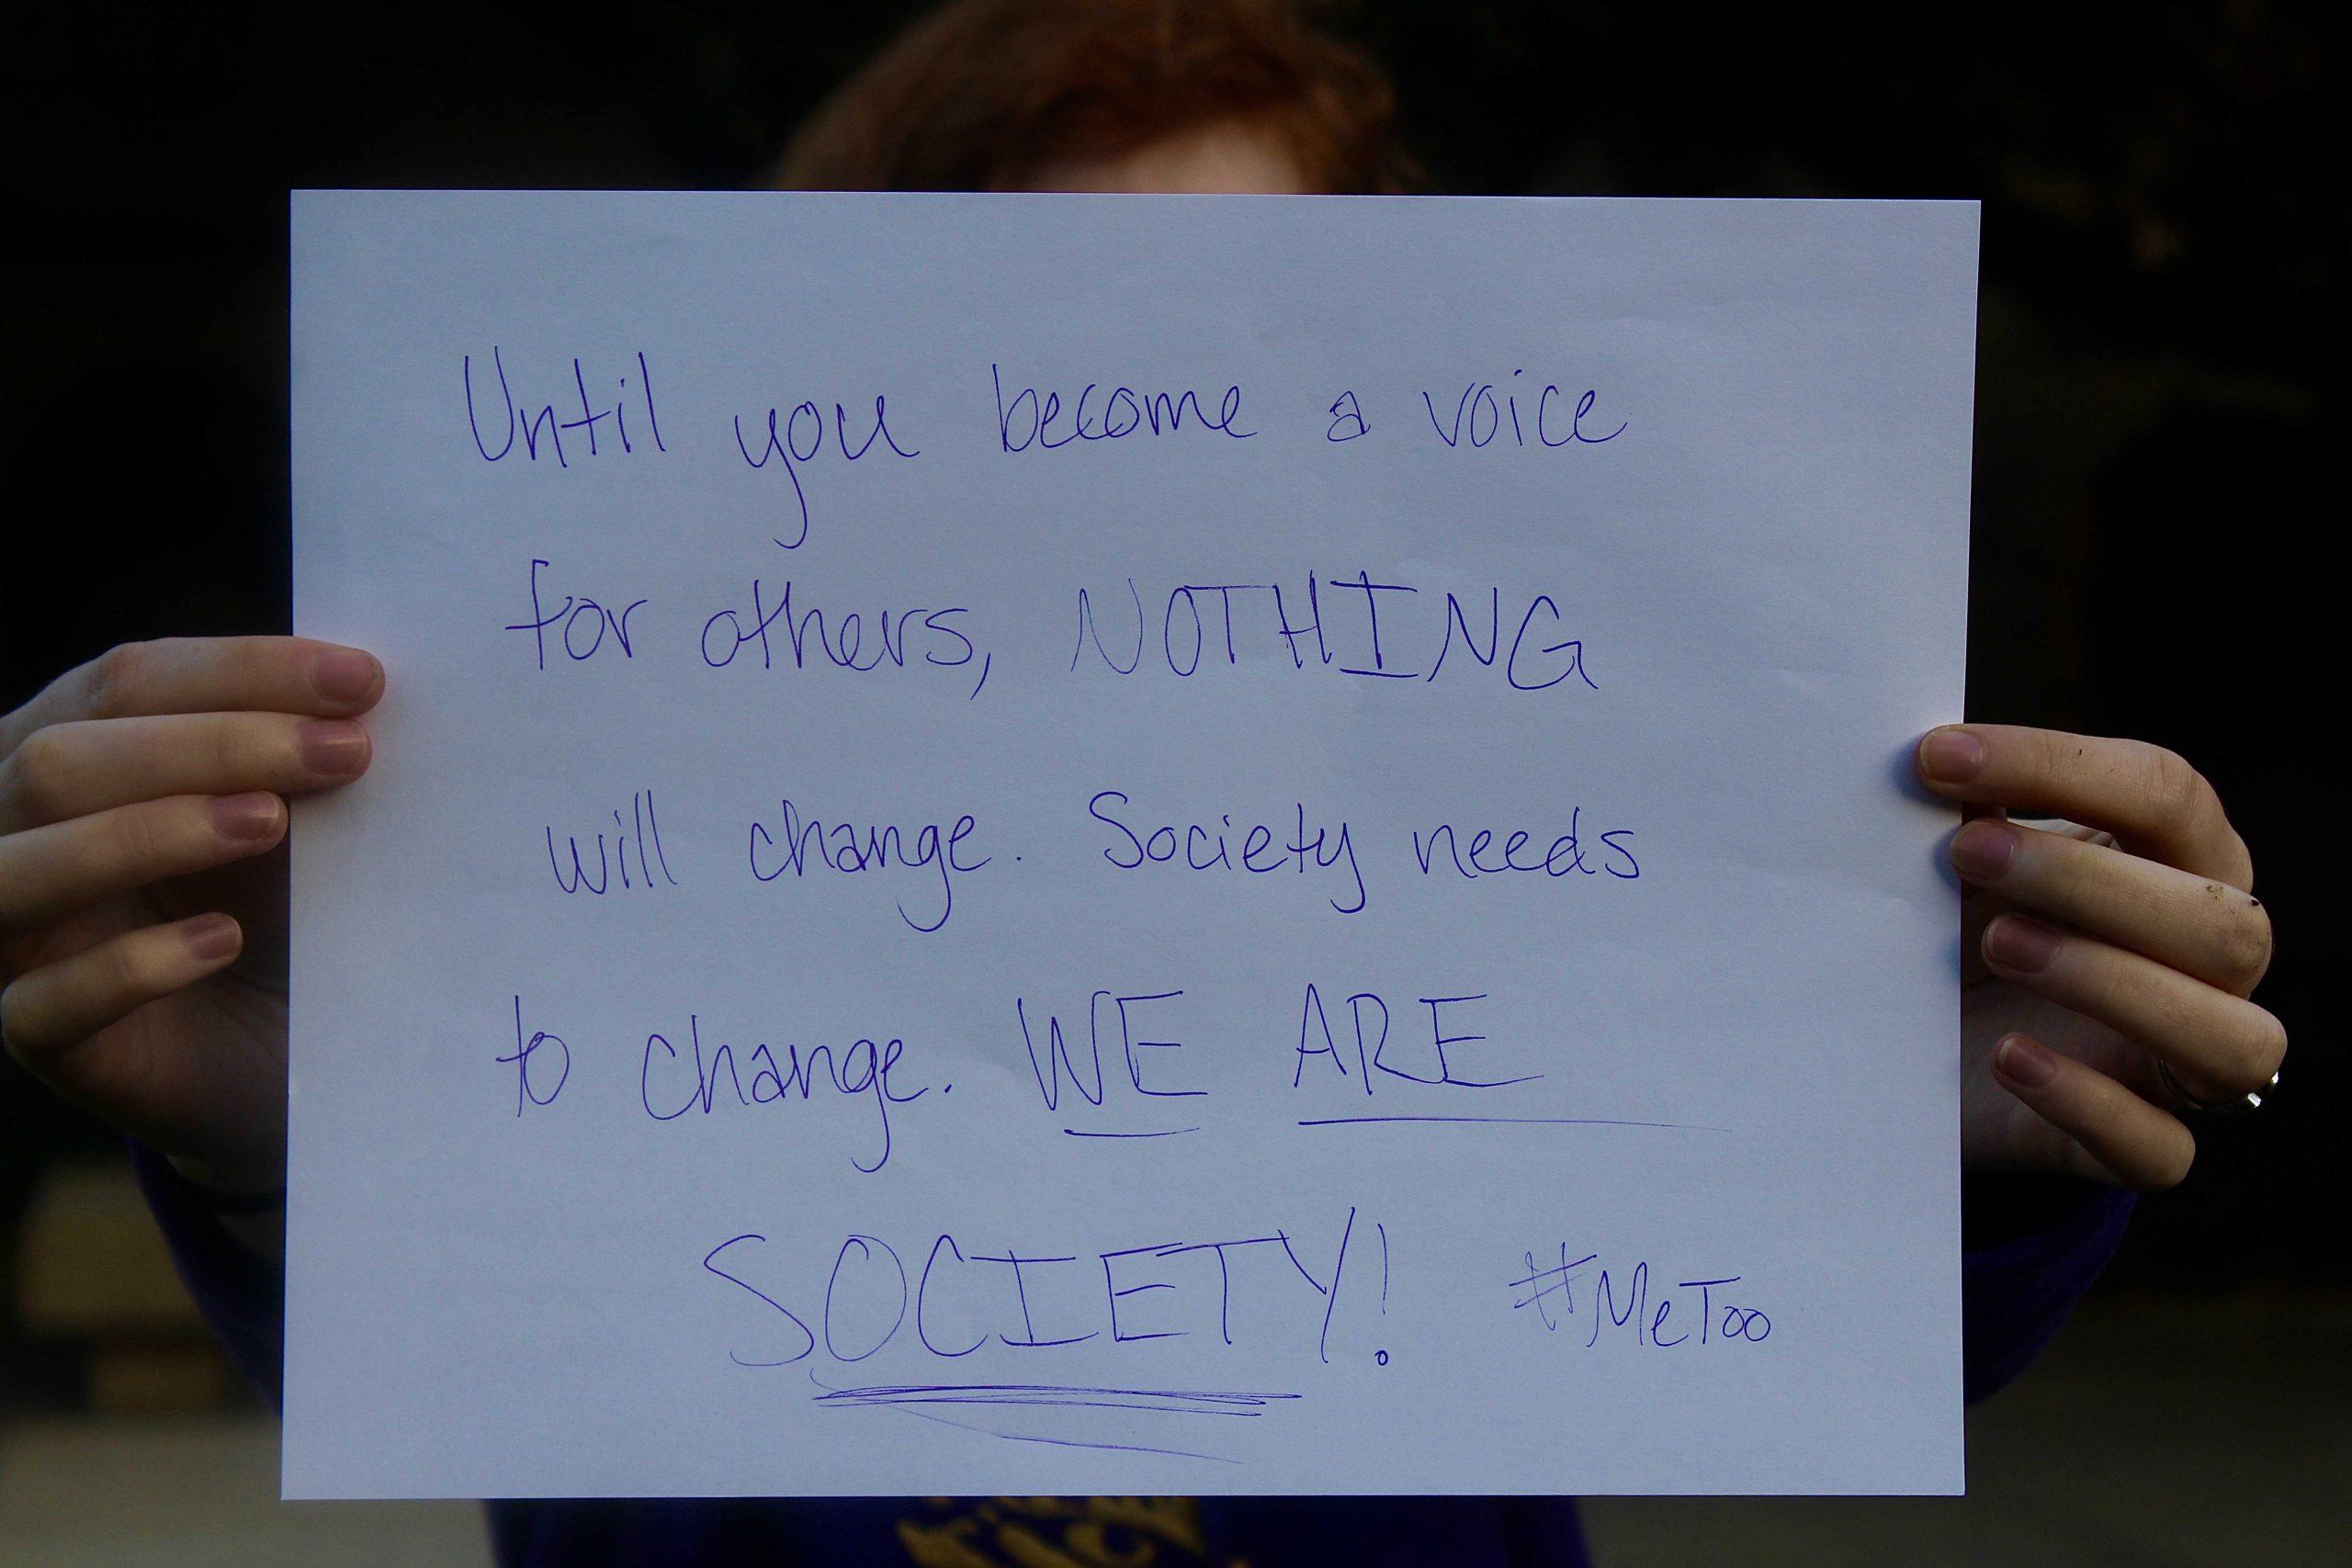 Until you become a voice
for others, NOTHING
will change. Society needs
to change. WE ARE
SOCIETY! #MeToo